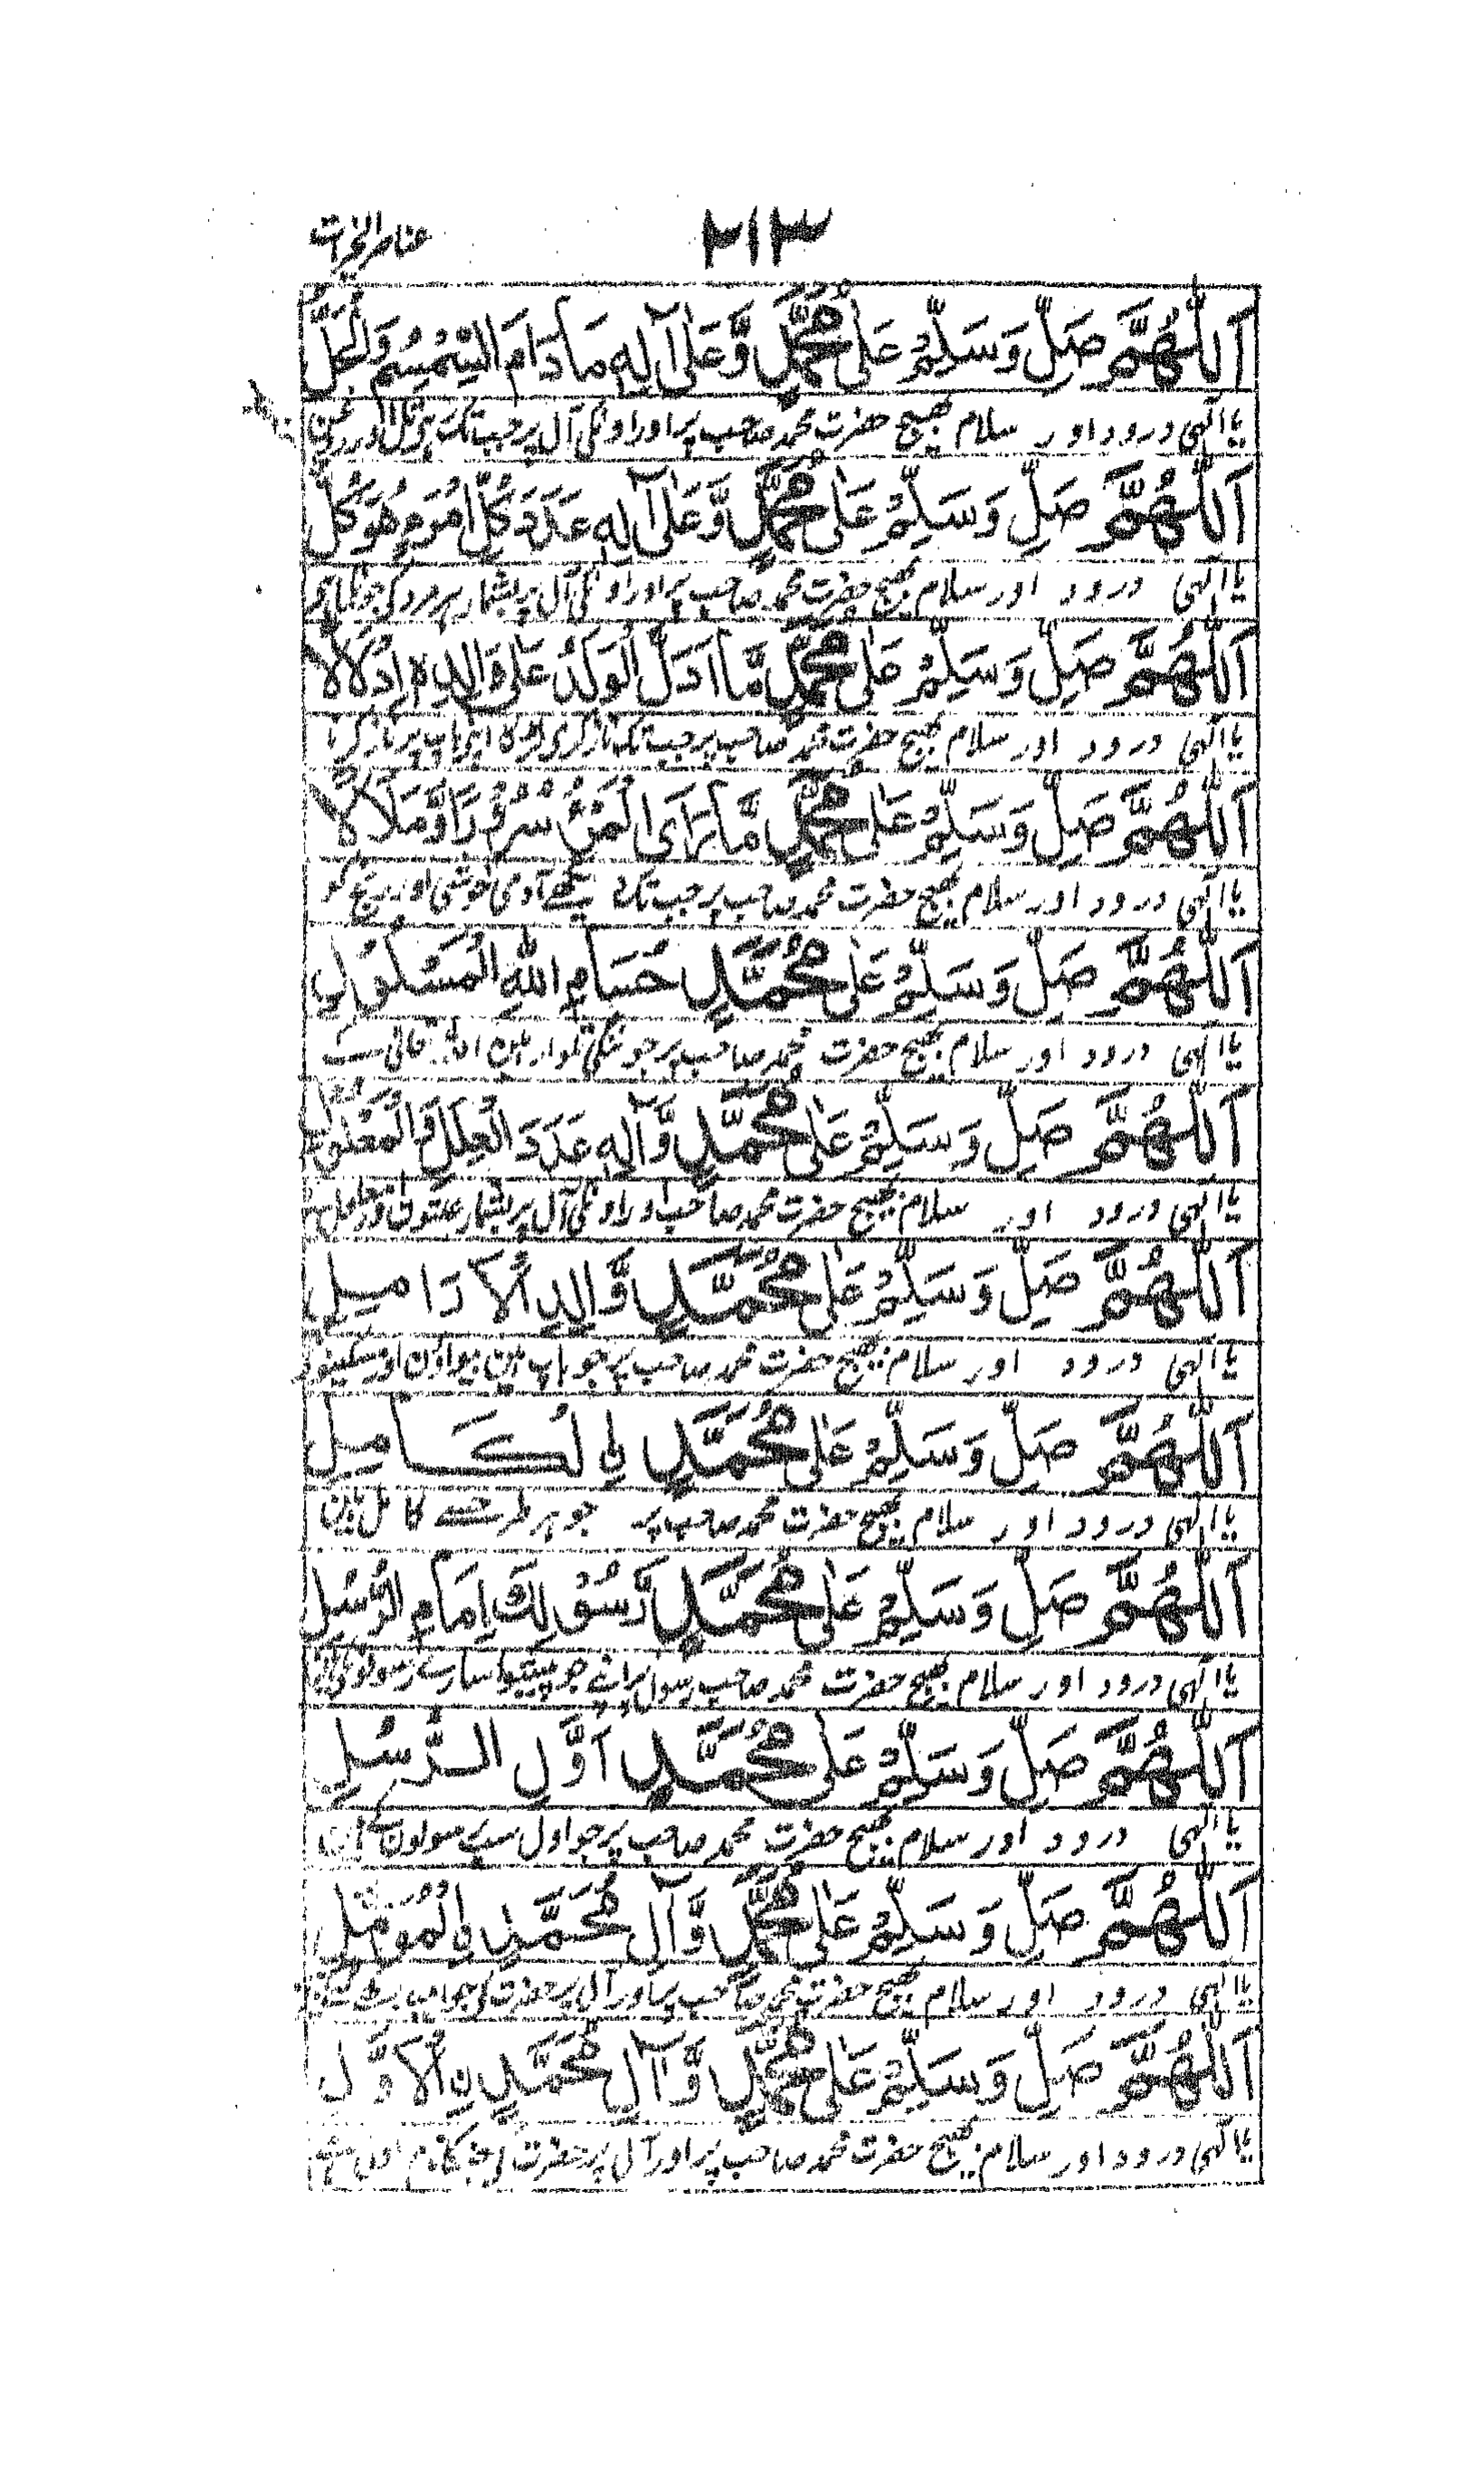 ۲۱۳
عناصر الخیرات
اَللّٰهُمَّ صَلِّ وَسَلِّمْ عَلٰی مُحَمَّدٍ وَّعَلٰی اٰلِهٖ مَا دَامَ
یا الٰہی درود اور سلام بھیج حضرت محمد صاحب پر اور اونکی آل پر جب تک
اَللّٰهُمَّ صَلِّ وَسَلِّمْ عَلٰی مُحَمَّدٍ وَّعَلٰی اٰلِهٖ عَدَدَ كُلِّ امْرَءٍ هُوَ كُلٌّ
یا الٰہی درود اور سلام بھیج حضرت محمد صاحب پر اور اونکی آل پر بشمار ہر مرد کی جو
اَللّٰهُمَّ صَلِّ وَسَلِّمْ عَلٰی مُحَمَّدٍ مَّا اَدَلَّ الْوَلَدُ عَلٰی وَالِدِهٖ اِدْلَالًا
یا الٰہی درود اور سلام بھیج حضرت محمد صاحب پر جب تک ناز کری لڑکا اپنی باپ پر ناز کرنا
اَللّٰهُمَّ صَلِّ وَسَلِّمْ عَلٰی مُحَمَّدٍ مَّا رَاَی الْمَرْءُ سُرُوْرًا وَّمَلَالًا
یا الٰہی درود اور سلام بھیج حضرت محمد صاحب پر جب تک دیکھے آدمی خوشی اور رنج کو
اَللّٰهُمَّ صَلِّ وَسَلِّمْ عَلٰی مُحَمَّدٍ حُسَامِ اللّٰهِ الْمَسْلُوْلِ
یا الٰہی درود اور سلام بھیج حضرت محمد صاحب پر جو ننگی تلوار ہین اللہ تعالی کے
اَللّٰهُمَّ صَلِّ وَسَلِّمْ عَلٰی مُحَمَّدٍ وَّاٰلِهٖ عَدَدَ الْعِلَلِ وَالْمَعْلُوْلِ
یا الٰہی درود اور سلام بھیج حضرت محمد صاحب اور اونکی آل پر بشمار علتون اور
اَللّٰهُمَّ صَلِّ وَسَلِّمْ عَلٰی مُحَمَّدٍ وَّالِدِ الْاَرَامِیلِ
یا الٰہی درود اور سلام بھیج حضرت محمد صاحب پر جو باپ ہین بیواؤن اور مسکینونکے
اَللّٰهُمَّ صَلِّ وَسَلِّمْ عَلٰی مُحَمَّدٍ نِ الْكَامِلِ
یا الٰہی درود اور سلام بھیج حضرت محمد صاحب پر جو ہر طرحسے کامل ہین
اَللّٰهُمَّ صَلِّ وَسَلِّمْ عَلٰی مُحَمَّدٍ رَّسُوْلِكَ اِمَامِ الرُّسُلِ
یا الٰہی درود اور سلام بھیج حضرت محمد صاحب رسول پر اپنے جو پیشوا سارے رسولونکی ہین
اَللّٰهُمَّ صَلِّ وَسَلِّمْ عَلٰی مُحَمَّدٍ اَوَّلِ الرُّسُلِ
یا الٰہی درود اور سلام بھیج حضرت محمد صاحب پر جو اول سب رسولون کے ہین
اَللّٰهُمَّ صَلِّ وَسَلِّمْ عَلٰی مُحَمَّدٍ وَّاٰلِ مُحَمَّدِ نِ
یا الٰہی درود اور سلام بھیج حضرت محمد صاحب پر اور آل پر حضرت کی
اَللّٰهُمَّ صَلِّ وَسَلِّمْ عَلٰی مُحَمَّدٍ وَّاٰلِ مُحَمَّدٍ نِ الْاَوَّلِ
یا الٰہی درود اور سلام بھیج حضرت محمد صاحب پر اور آل پر حضرت کی جنکا نام اول